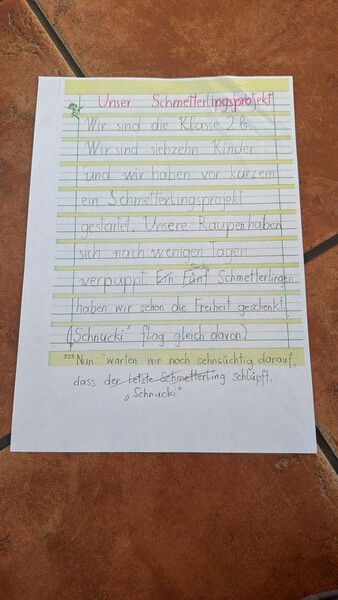 Unser Schmetterlingsprojekt
Wir sind die Klasse 2b.
Wir sind siebzehn Kinder
und wir haben vor kurzem
ein Schmetterlingsprojekt
gestartet. Unsere Raupen haben
sich nach wenigen Tagen
verpuppt. Ein Fünf Schmetterlingen
haben wir schon die Freiheit geschenkt.
("Schnucki" flog gleich davon)
Nun warten wir noch sehnsüchtig darauf,
dass der letzte Schmetterling schlüpft.
„Schnucki"